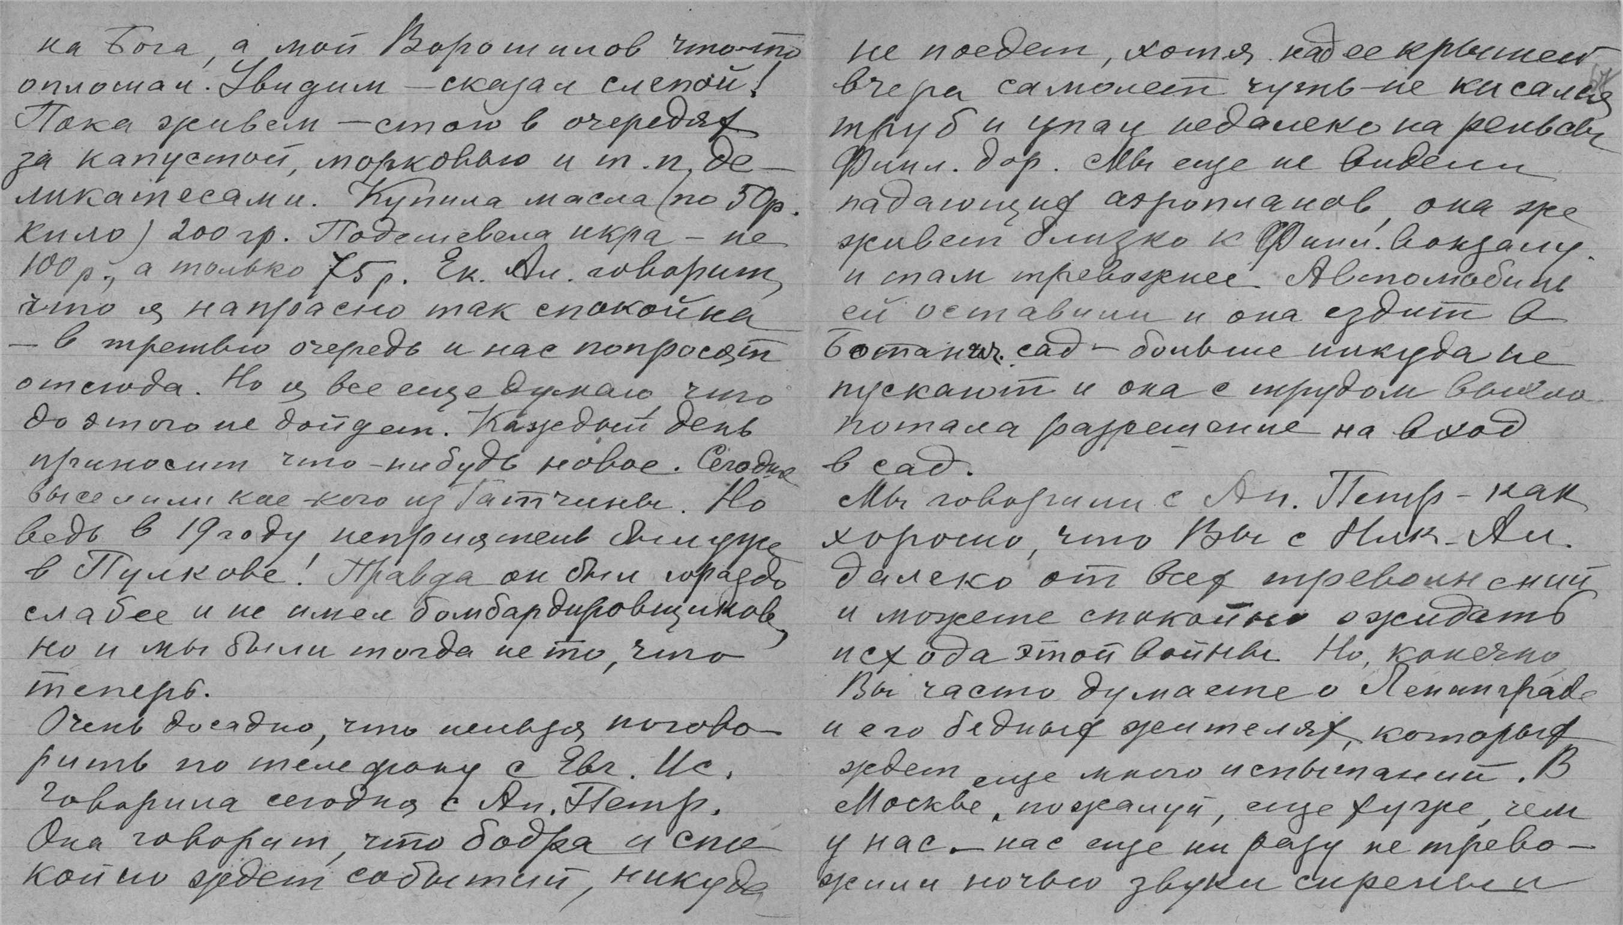 на Бога, а мой Ворошилов что-то
оплошал. Увидим — сказал слепой!
Пока живем — стою в очередях
за капустой, морковью и т.п. де-
ликатесами. Купила масла (по 50 р.
кило) 200 гр. Подешевела икра — не
100 р., а только 75 р. Ек. Ал. говорит,
что я напрасно так спокойна
— в третью очередь и нас попросят
отсюда. Но я все еще думаю, что
до этого не дойдет. Каждый день
приносит что-нибудь новое. Сегодня
выселили кое-кого из Гатчины. Но
ведь в 19 году неприятель был уже
в Пулкове! Правда он был гораздо
слабее и не имел бомбардировщиков,
но и мы были тогда не то, что
теперь.
Очень досадно, что нельзя погово-
рить по телефону с Евг. Ис.
Говорила сегодня с Ан. Петр.
Она говорит, что бодра и спо-
койно ждет событий, никуда
не поедет, хотя над ее крышей
вчера самолет чуть не касался
труб и упал недалеко на рельсы
Финл. дор. Мы еще не видели
падающих аэропланов, она же
живет близко к Финл. вокзалу.
и там тревожнее. Автомобиль
ей оставили и она ездит в
Ботанич. сад — больше никуда не
пускают и она с трудом выхло-
потала разрешение на вход
в сад.
Мы говорили с Ан. Петр — как
хорошо, что Вы с Ник. Ал.
далеко от всех треволнений
и можете спокойно ожидать
исхода этой войны. Но, конечно,
Вы часто думаете о Ленинграде
и его бедных жителях, которых
ждет еще много испытаний. В
Москве, пожалуй, еще хуже, чем
у нас — нас еще ни разу не трево-
жили ночью звуки сирены и